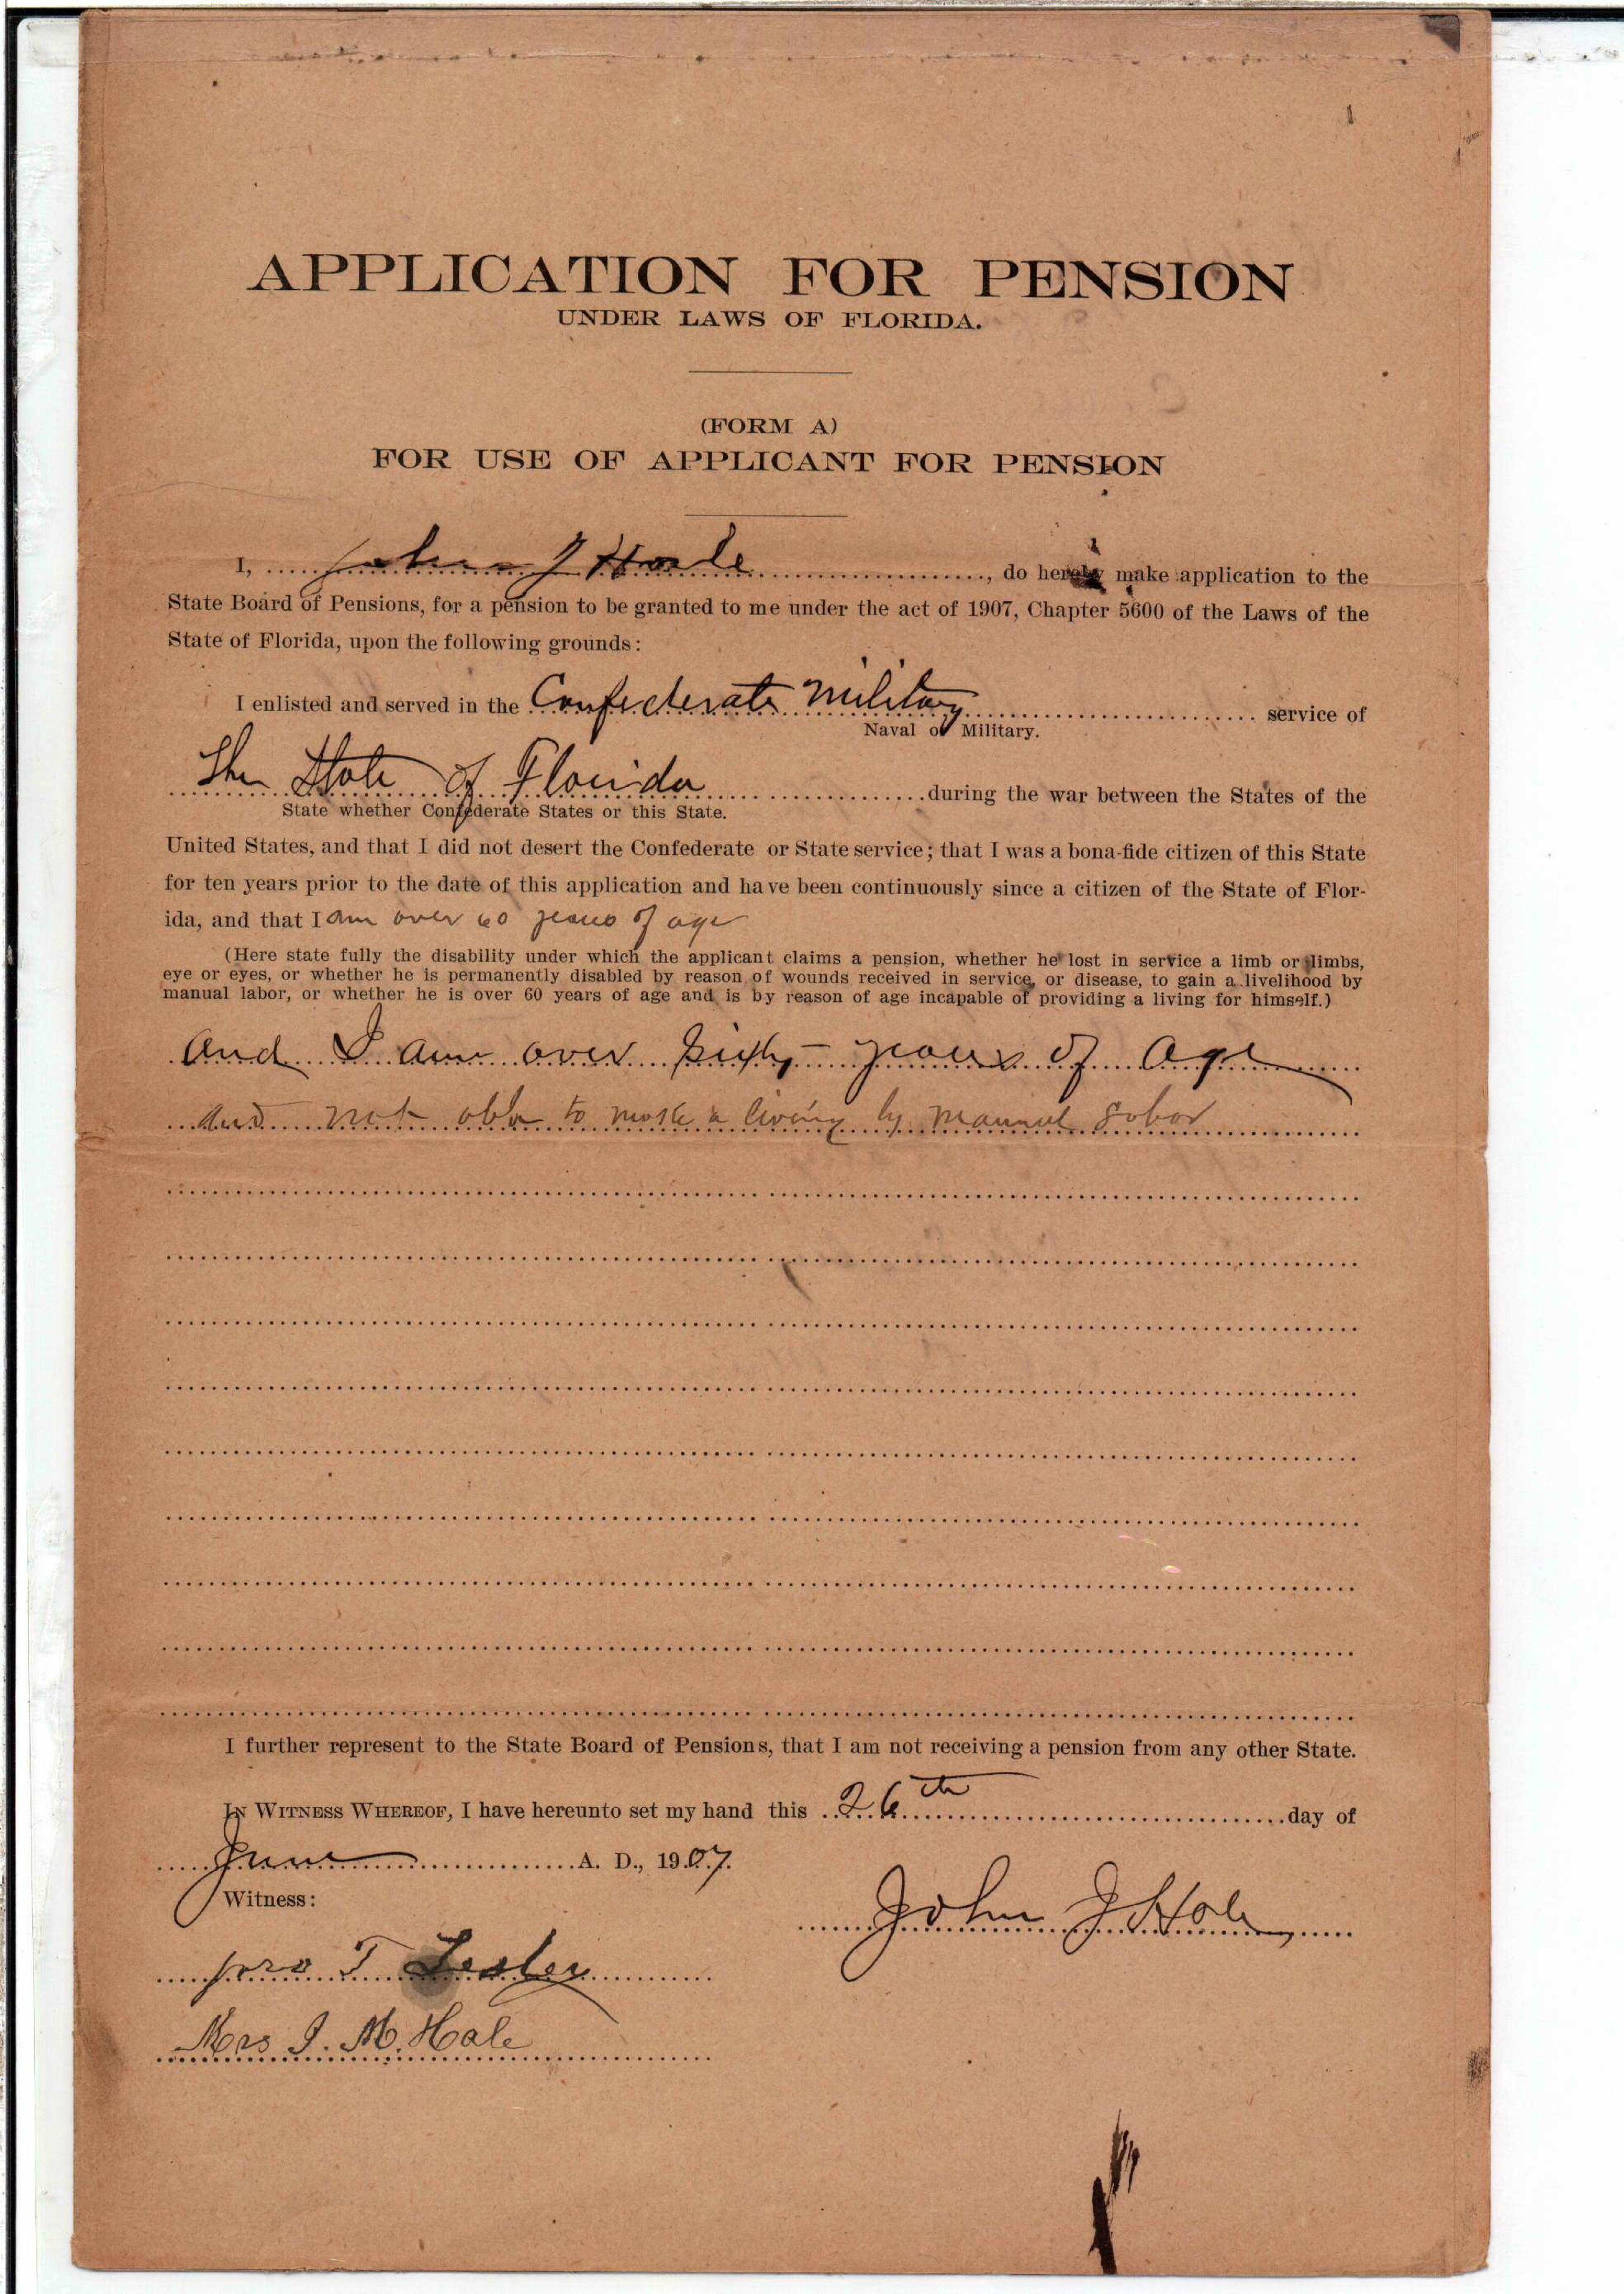 APPLICATION FOR PENSION
UNDER LAWS OF FLORIDA.
(FORM A)
FOR USE OF APPLICANT FOR PENSION
I, John J Hale, do hereby make application to the
State Board of Pensions, for a pension to be granted to me under the act of 1907, Chapter 5600 of the Laws of the
State of Florida, upon the following grounds:
I enlisted and served in the Confederate Military service of
Naval or Military.
The State of Florida during the war between the States of the
State whether Confederate States or this State.
United States, and that I did not desert the Confederate or State service; that I was a bona-fide citizen of this State
for ten years prior to the date of this application and have been continuously since a citizen of the State of Flor-
ida, and that I am over 60 years of age
(Here state fully the disability under which the applicant claims a pension, whether he lost in service a limb or limbs,
eye or eyes, or whether he is permanently disabled by reason of wounds received in service, or disease, to gain a livelihood by
manual labor, or whether he is over 60 years of age and is by reason of age incapable of providing a living for himself.)
And I am over sixty years of age
and not able to make a living by manual labor
I further represent to the State Board of Pensions, that I am not receiving a pension from any other State.
IN WITNESS WHEREOF, I have hereunto set my hand this 26th day of
June A. D., 1907.
Witness:
John J Hale
T Lesley
Mrs J. M. Hale